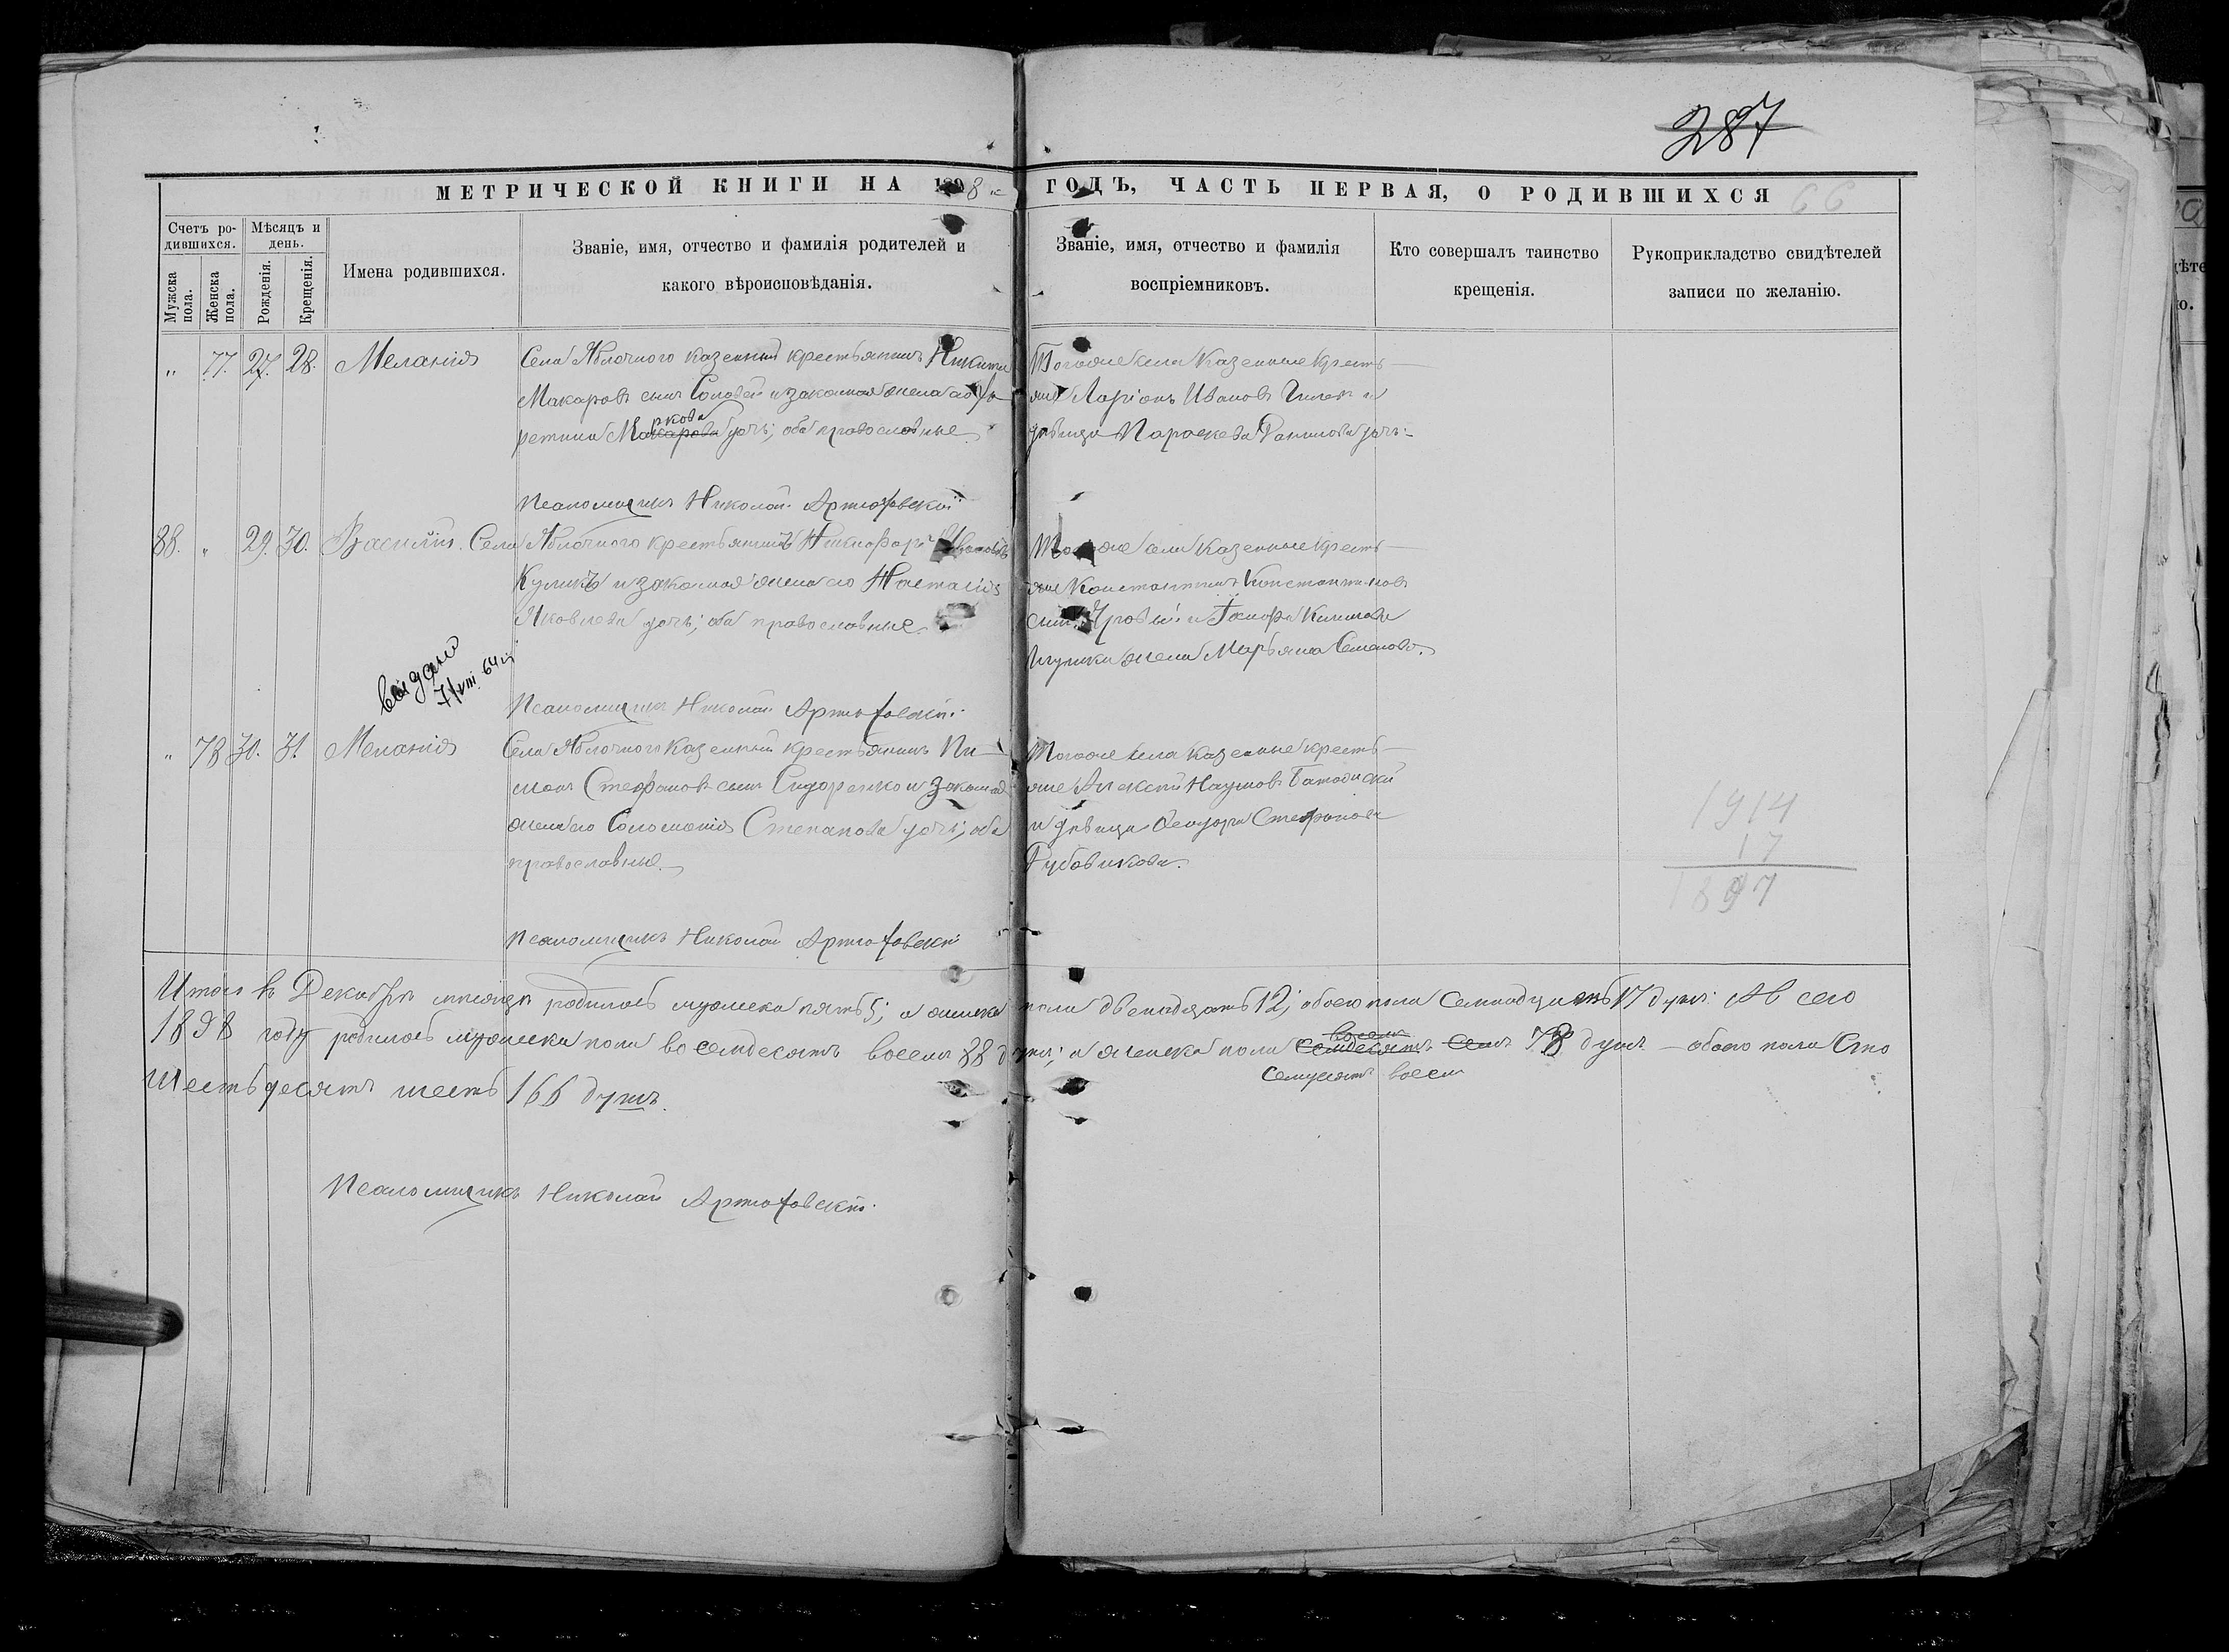 287
МЕТРИЧЕСКОЙ КНИГИ НА 1898 ГОДЪ, ЧАСТЬ ПЕРВАЯ, О РОДИВШИХСЯ 66
Счетъ ро-
дившихся.
Мужска
пола.
Женска
пола.
Мѣсяцъ и
день.
Рожденія.
Крещенія.
Имена родившихся.
Званіе, имя, отчество и фамилія родителей и
какого вѣроисповѣданія.
Званіе, имя, отчество и фамилія
воспріемниковъ.
Кто совершалъ таинство
крещенія.
Рукоприкладство свидѣтелей
записи по желанію.
„ 77. 27. 28. Меланія
Села Яблочного казенный крестьянинъ Никита
Макаровъ сынъ Соловей и законная жена его
Макарова ркова дочь; оба православные
Тогоже села казенные кресть-
яне Ларіонъ Ивановъ и
дѣвица Параскева Данилова дочь.
Псаломщикъ Николай Артюховскій
88. „ 29. 30. Василій.
Села Яблочного крестьянинъ Никифоръ Ивановъ
Куликъ и законная жена его Настасія
Яковлева дочь; оба православные.
Тогоже села казенные кресть-
яне Константинъ Константиновъ
сынъ Яровый и
жена Марьяна Семенова.
выдано
7/VIII 64 г.
Псаломщикъ Николай Артюховскій.
„ 78 30. 31. Меланія
Села Яблочного казенный крестьянинъ Пи-
менъ Стефановъ сынъ Сидоренко и законная
жена его Соломонія Степанова дочь; оба
православные.
Тогоже села казенные кресть-
яне Алексѣй Наумовъ
и дѣвица Феодора Стефанова
1914
17
1897
Псаломщикъ Николай Артюховскій
Итого въ Декабрѣ мѣсяцѣ родилось мужска пять 5; а женска пола двенадцать 12; обоего пола семнадцать 17 душъ. А в сего
1898 году родилось мужска пола восемдесятъ восемь 88 душъ; а женска пола семдесятъ семь 78 душъ — обоего пола Сто
восемь
семдесятъ восемь
шестьдесятъ шесть 166 душъ.
Псаломщикъ Николай Артюховскій.